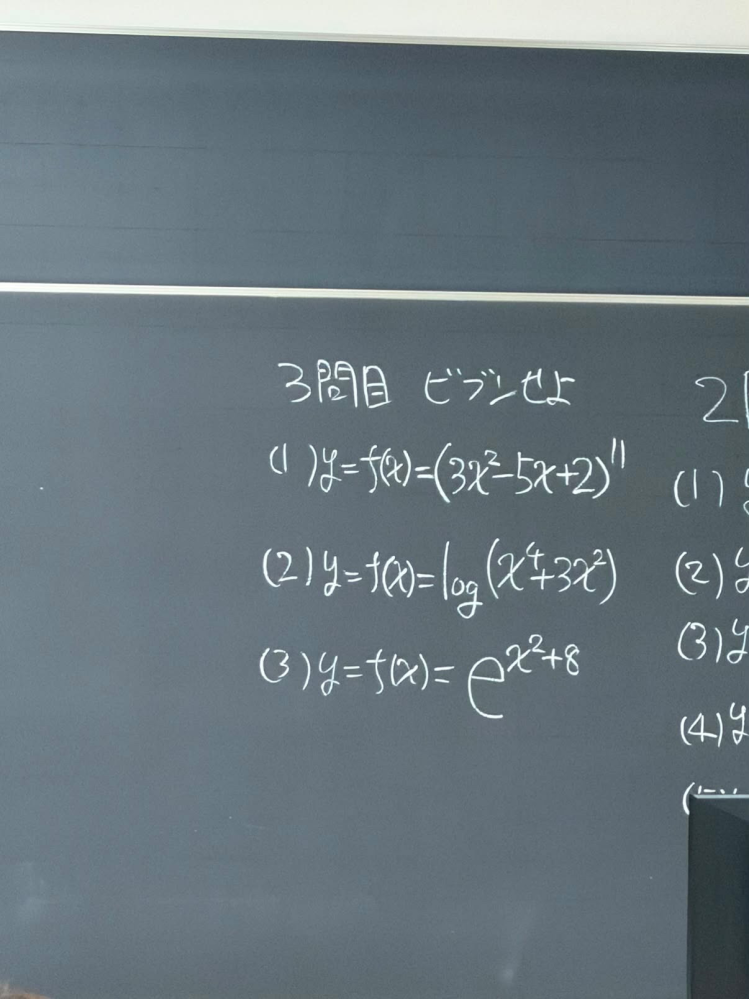 3問目 ビブンせよ
(1) y=f(x)=(3x²-5x+2)¹¹
(2) y=f(x)=log(x⁴+3x²)
(3) y=f(x)=e^{x²+8}
2
(1) y
(2) y
(3) y
(4) y